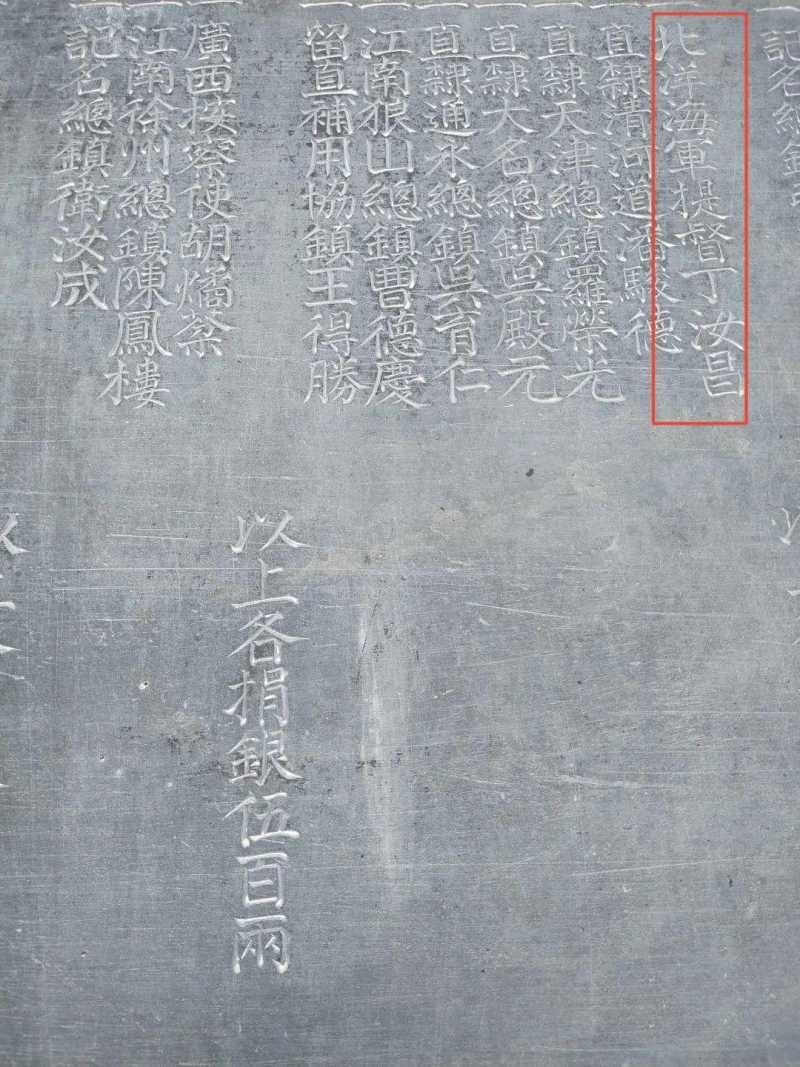 記名總鎮
北洋海軍提督丁汝昌
直隸清河道潘駿德
直隸天津總鎮羅榮光
直隸大名總鎮吳殿元
直隸通永總鎮吳育仁
江南狼山總鎮曹德慶
留直補用協鎮王得勝
以上各捐銀伍百兩
廣西按察使胡燏棻
江南徐州總鎮陳鳳樓
記名總鎮衛汝成